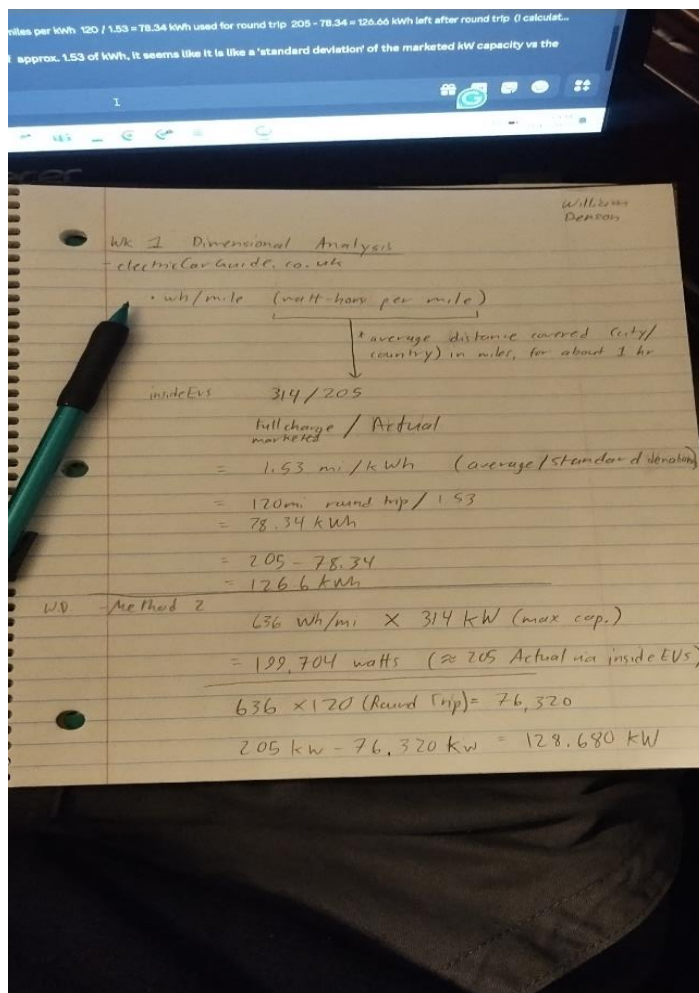 miles per kWh 120 / 1.53 = 78.34 kWh used for round trip 205 - 78.34 = 126.66 kWh left after round trip (I calculat...
approx. 1.53 of kWh, it seems like it is like a 'standard deviation' of the marketed kW capacity vs the
acer
William
Denson
Wk 1 Dimensional Analysis
- electricCarGuide.co.uk
• wh/mile (watt-hours per mile)
* average distance covered (city/
country) in miles, for about 1 hr
insideEvs 314/205
full charge / Actual
marketed
= 1.53 mi/kWh (average/standard deviation)
= 120mi round trip / 1.53
= 78.34 kWh
= 205 - 78.34
= 126.6 kWh
W.D - Method 2
636 Wh/mi × 314 kW (max cap.)
= 199,704 watts (≈ 205 Actual via insideEVs)
636 ×120 (Round Trip) = 76,320
205 kw - 76,320 kw = 128.680 kW